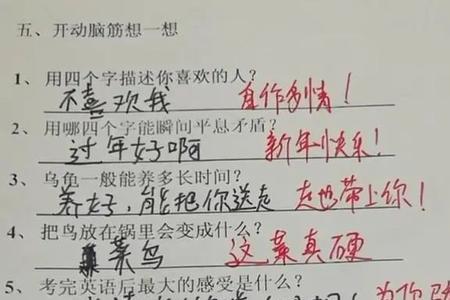 五、开动脑筋想一想
1、用四个字描述你喜欢的人?
不喜欢我 自作多情!
2、用哪四个字能瞬间平息矛盾?
过年好啊 新年快乐!
3、乌龟一般能养多长时间?
养好,能把你送走 走也带上你!
4、把鸟放在锅里会变成什么?
菜鸟 这菜真硬
5、考完英语后最大的感受是什么?